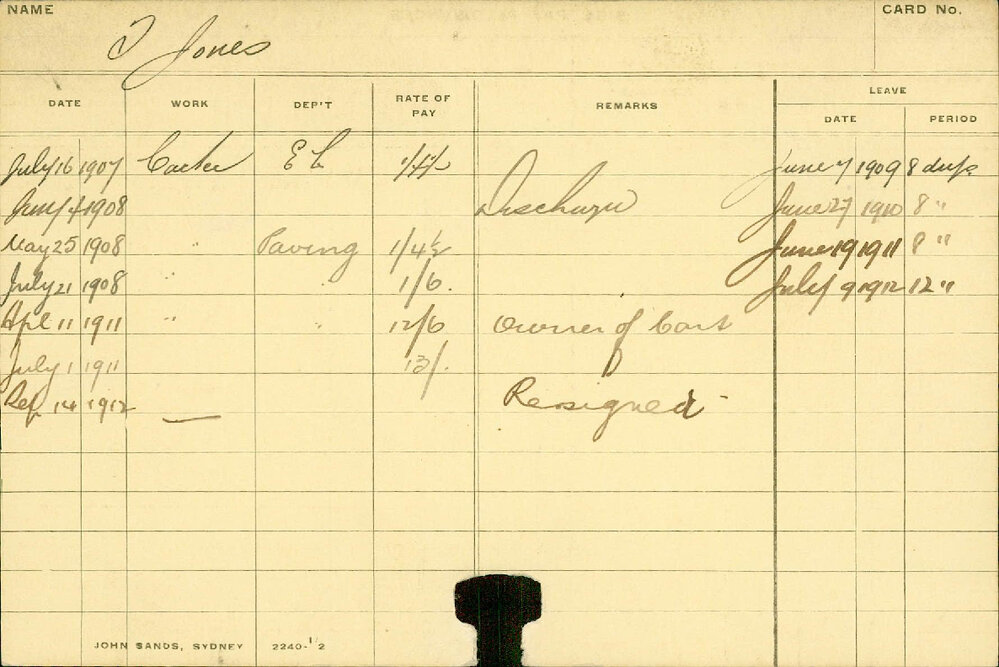 NAME CARD No.
J Jones
LEAVE
DATE WORK DEP'T RATE OF PAY REMARKS DATE PERIOD
July 16 1907 Carter E L June 7 1909 8 days
4 1908 Discharge June 27 1910 8 "
May 25 1908 " Paving 1/4½ June 19 1911 8 "
July 21 1908 " 1/6. July 9 1912 12 "
Apl 11 1911 " " 12/6 Owner of Cart
July 1 1911 13/.
Sep 14 1912 — Resigned
JOHN SANDS, SYDNEY 2240-1/2